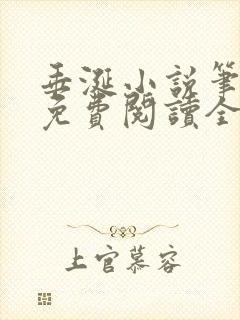 垂涎小說筆
免費閱讀全
上官慕容